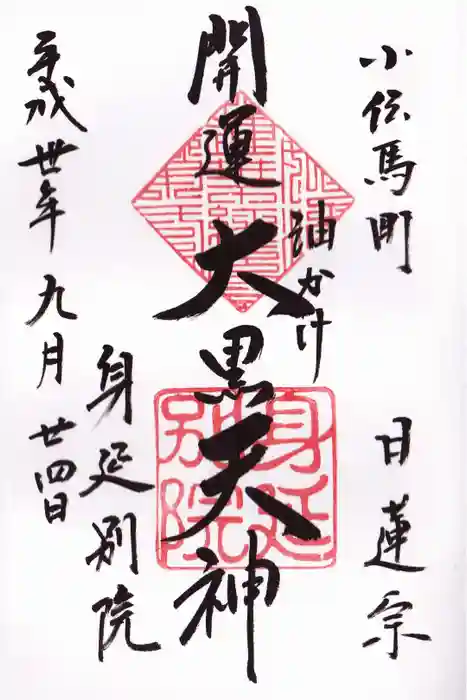 小伝馬町
日蓮宗
油かけ
開運大黒天神
身延別院
平成卅年九月廿四日
身延別院